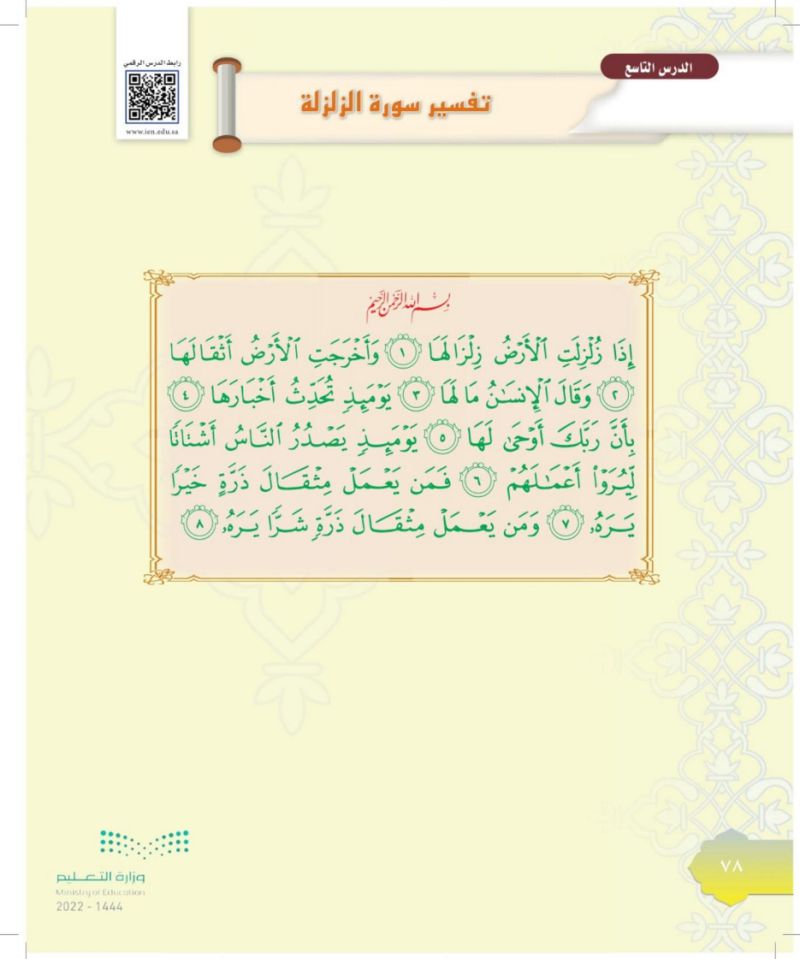 رابط الدرس الرقمي
www.ien.edu.sa
الدرس التاسع
تفسير سورة الزلزلة
بِسْمِ اللَّهِ الرَّحْمَٰنِ الرَّحِيمِ
إِذَا زُلْزِلَتِ ٱلْأَرْضُ زِلْزَالَهَا ١ وَأَخْرَجَتِ ٱلْأَرْضُ أَثْقَالَهَا
٢ وَقَالَ ٱلْإِنسَٰنُ مَا لَهَا ٣ يَوْمَئِذٍ تُحَدِّثُ أَخْبَارَهَا ٤
بِأَنَّ رَبَّكَ أَوْحَىٰ لَهَا ٥ يَوْمَئِذٍ يَصْدُرُ ٱلنَّاسُ أَشْتَاتًا
لِّيُرَوْا۟ أَعْمَٰلَهُمْ ٦ فَمَن يَعْمَلْ مِثْقَالَ ذَرَّةٍ خَيْرًا
يَرَهُۥ ٧ وَمَن يَعْمَلْ مِثْقَالَ ذَرَّةٍ شَرًّا يَرَهُۥ ٨
٧٨
وزارة التعليم
Ministry of Education
2022 - 1444